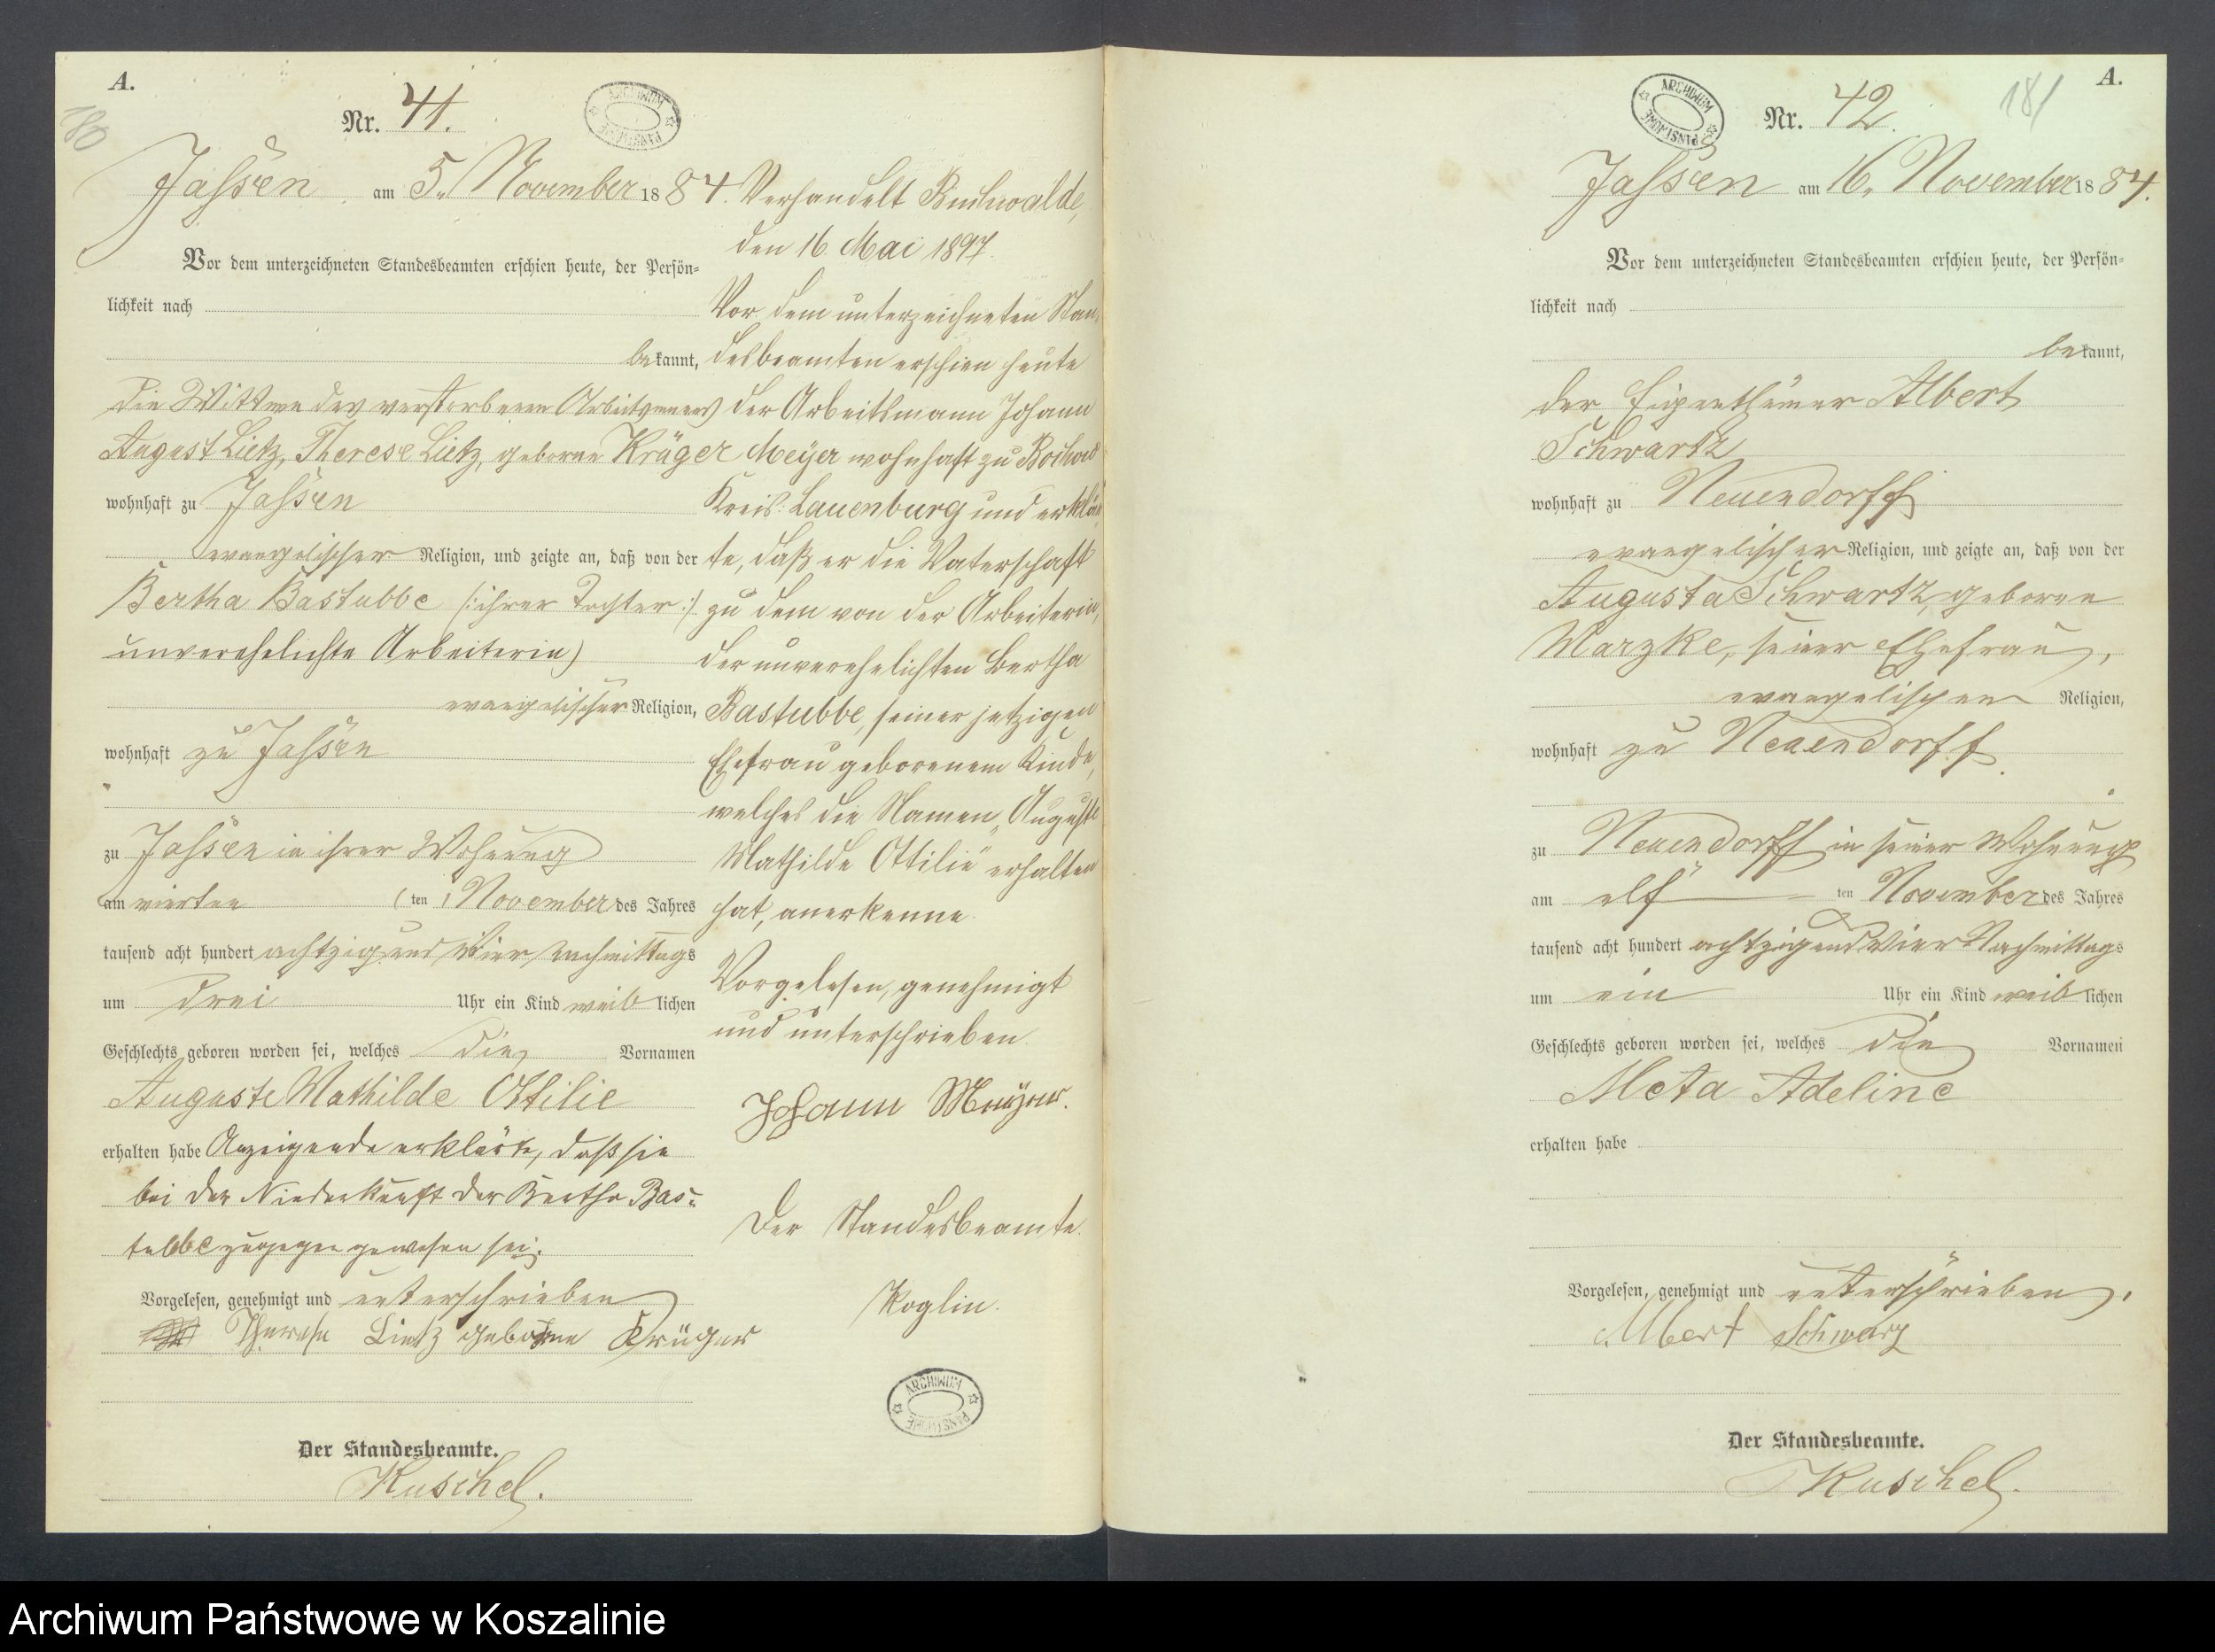 A.
180
Nr. 41.
ARCHIWUM PAŃSTWOWE
Jassen am 5. November 1884.
Vor dem unterzeichneten Standesbeamten erschien heute, der Persön-
lichkeit nach
bekannt,
die Wittwe des verstorbenen Arbeitsmanns
August Lietz, Therese Lietz, geborne Krüger
wohnhaft zu Jassen
evangelischer Religion, und zeigte an, daß von der
Bertha Bastubbe (: ihrer Tochter :)
unverehelichte Arbeiterin)
evangelischer Religion,
wohnhaft zu Jassen
zu Jassen in ihrer Wohnung
am vierten (ten) November des Jahres
tausend acht hundert achtzig und vier nachmittags
um drei Uhr ein Kind weiblichen
Geschlechts geboren worden sei, welches die Vornamen
Auguste Mathilde Ottilie
erhalten habe Anzeigende erklärte, daß sie
bei der Niederkunft der Bertha Bas-
tubbe zugegen gewesen sei.
Vorgelesen, genehmigt und unterschrieben
Therese Lietz geborne Krüger
Der Standesbeamte.
Kuschel.
Verhandelt Buchwalde,
den 16. Mai 1897.
Vor dem unterzeichneten Stan-
desbeamten erschien heute
der Arbeitsmann Johann
Meyer wohnhaft zu
Kreis Lauenburg und erklär-
te, daß er die Vaterschaft
zu dem von der Arbeiterin,
der unverehelichten Bertha
Bastubbe, seiner jetzigen
Ehefrau geborenem Kinde,
welches die Namen „Auguste
Mathilde Ottilie" erhalten
hat, anerkenne.
Vorgelesen, genehmigt
und unterschrieben.
Johann Meyer.
Der Standesbeamte.
Koglin.
ARCHIWUM PAŃSTWOWE
A.
181
Nr. 42.
ARCHIWUM PAŃSTWOWE
Jassen am 16. November 1884.
Vor dem unterzeichneten Standesbeamten erschien heute, der Persön-
lichkeit nach
bekannt,
der Eigenthümer Albert
Schwartz
wohnhaft zu Neuendorff
evangelischer Religion, und zeigte an, daß von der
Augusta Schwartz, geborne
Marzke, seiner Ehefrau,
evangelischen Religion,
wohnhaft zu Neuendorff
zu Neuendorff in seiner Wohnung
am elf ten November des Jahres
tausend acht hundert achtzig und vier Nachmittags
um ein Uhr ein Kind weiblichen
Geschlechts geboren worden sei, welches die Vornamen
Meta Adeline
erhalten habe
Vorgelesen, genehmigt und unterschrieben,
Albert Schwarz
Der Standesbeamte.
Kuschel.
Archiwum Państwowe w Koszalinie